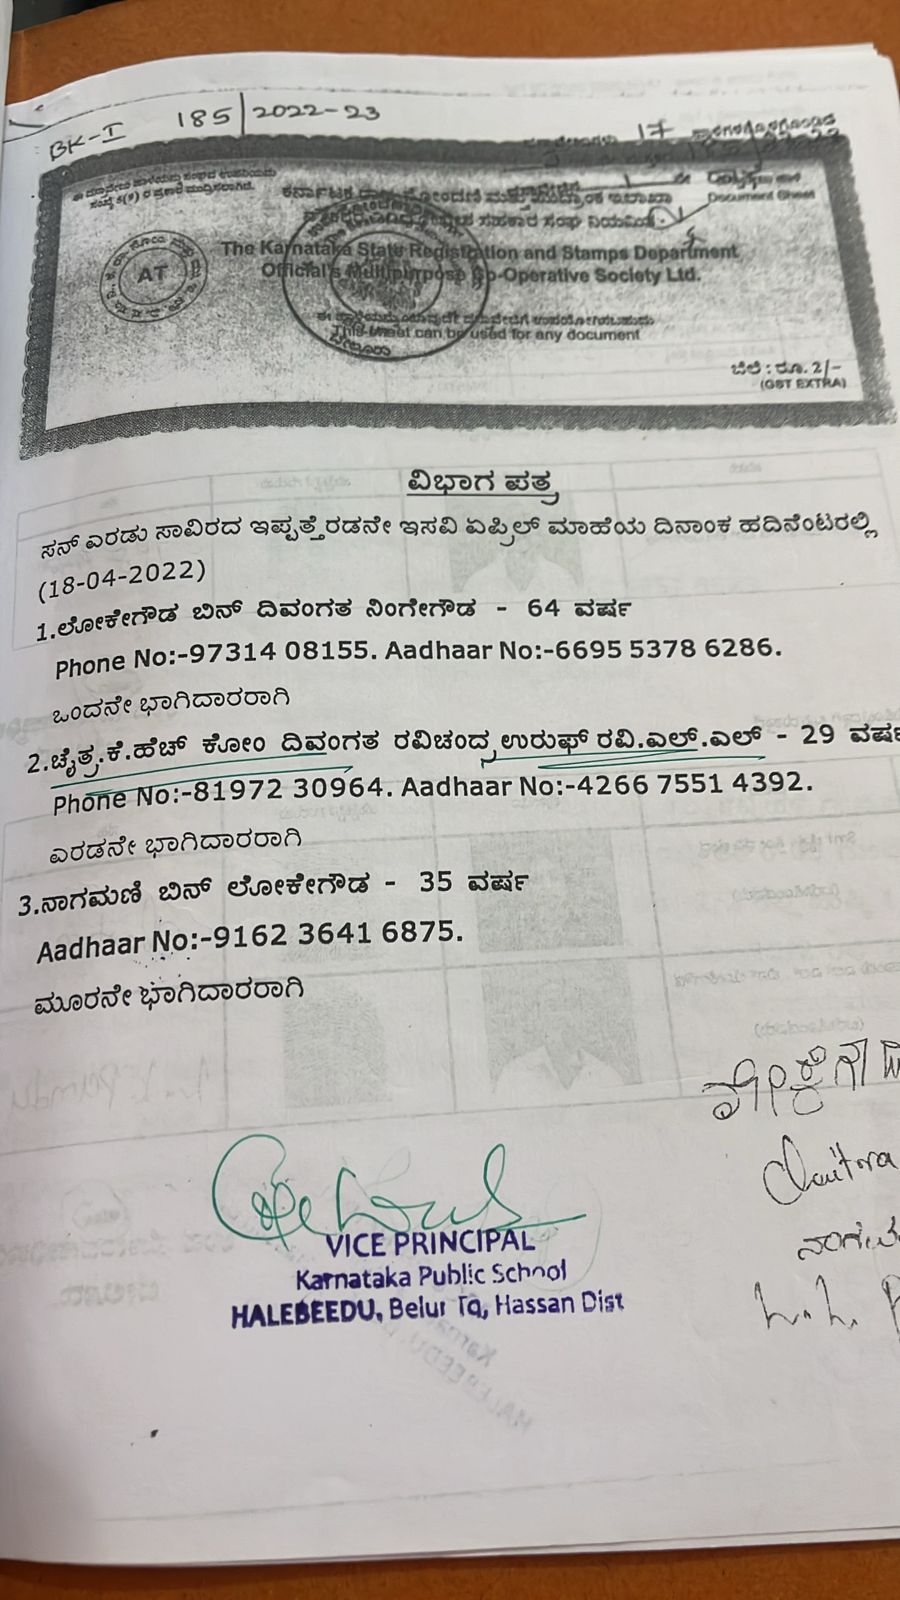 BK-I 185/2022-23
17
Document Sheet
The Karnataka State Registration and Stamps Department
Official's Multipurpose Co-Operative Society Ltd.
AT
This sheet can be used for any document
ಬೆಲೆ : ರೂ. 2/-
(GST EXTRA)
ವಿಭಾಗ ಪತ್ರ
ಸನ್ ಎರಡು ಸಾವಿರದ ಇಪ್ಪತ್ತೆರಡನೇ ಇಸವಿ ಏಪ್ರಿಲ್ ಮಾಹೆಯ ದಿನಾಂಕ ಹದಿನೆಂಟರಲ್ಲಿ
(18-04-2022)
1.ಲೋಕೇಗೌಡ ಬಿನ್ ದಿವಂಗತ ನಿಂಗೇಗೌಡ - 64 ವರ್ಷ
Phone No:-97314 08155. Aadhaar No:-6695 5378 6286.
ಒಂದನೇ ಭಾಗಿದಾರರಾಗಿ
2.ಚೈತ್ರ.ಕೆ.ಹೆಚ್ ಕೋಂ ದಿವಂಗತ ರವಿಚಂದ್ರ ಉರುಫ್ ರವಿ.ಎಲ್.ಎಲ್ - 29 ವರ್ಷ
Phone No:-81972 30964. Aadhaar No:-4266 7551 4392.
ಎರಡನೇ ಭಾಗಿದಾರರಾಗಿ
3.ನಾಗಮಣಿ ಬಿನ್ ಲೋಕೇಗೌಡ - 35 ವರ್ಷ
Aadhaar No:-9162 3641 6875.
ಮೂರನೇ ಭಾಗಿದಾರರಾಗಿ
Chaitra
VICE PRINCIPAL
Karnataka Public School
HALEBEEDU, Belur Tq, Hassan Dist